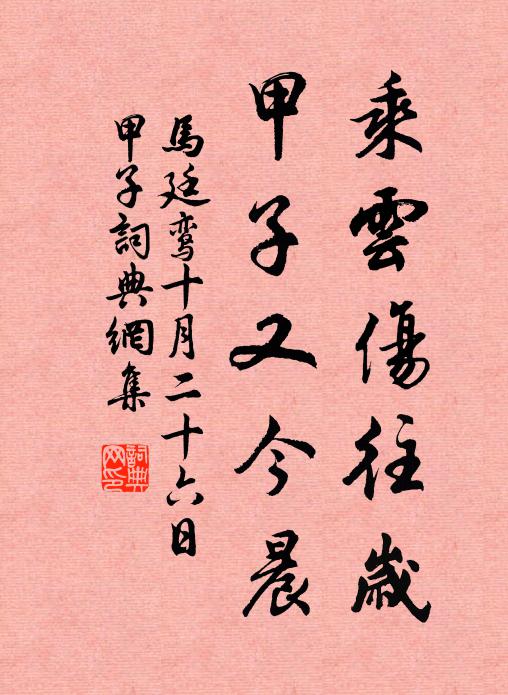 乘雲傷往歲
甲子又今晨
馬廷鸾十月二十六日
甲子詞典網集
詞典
网印